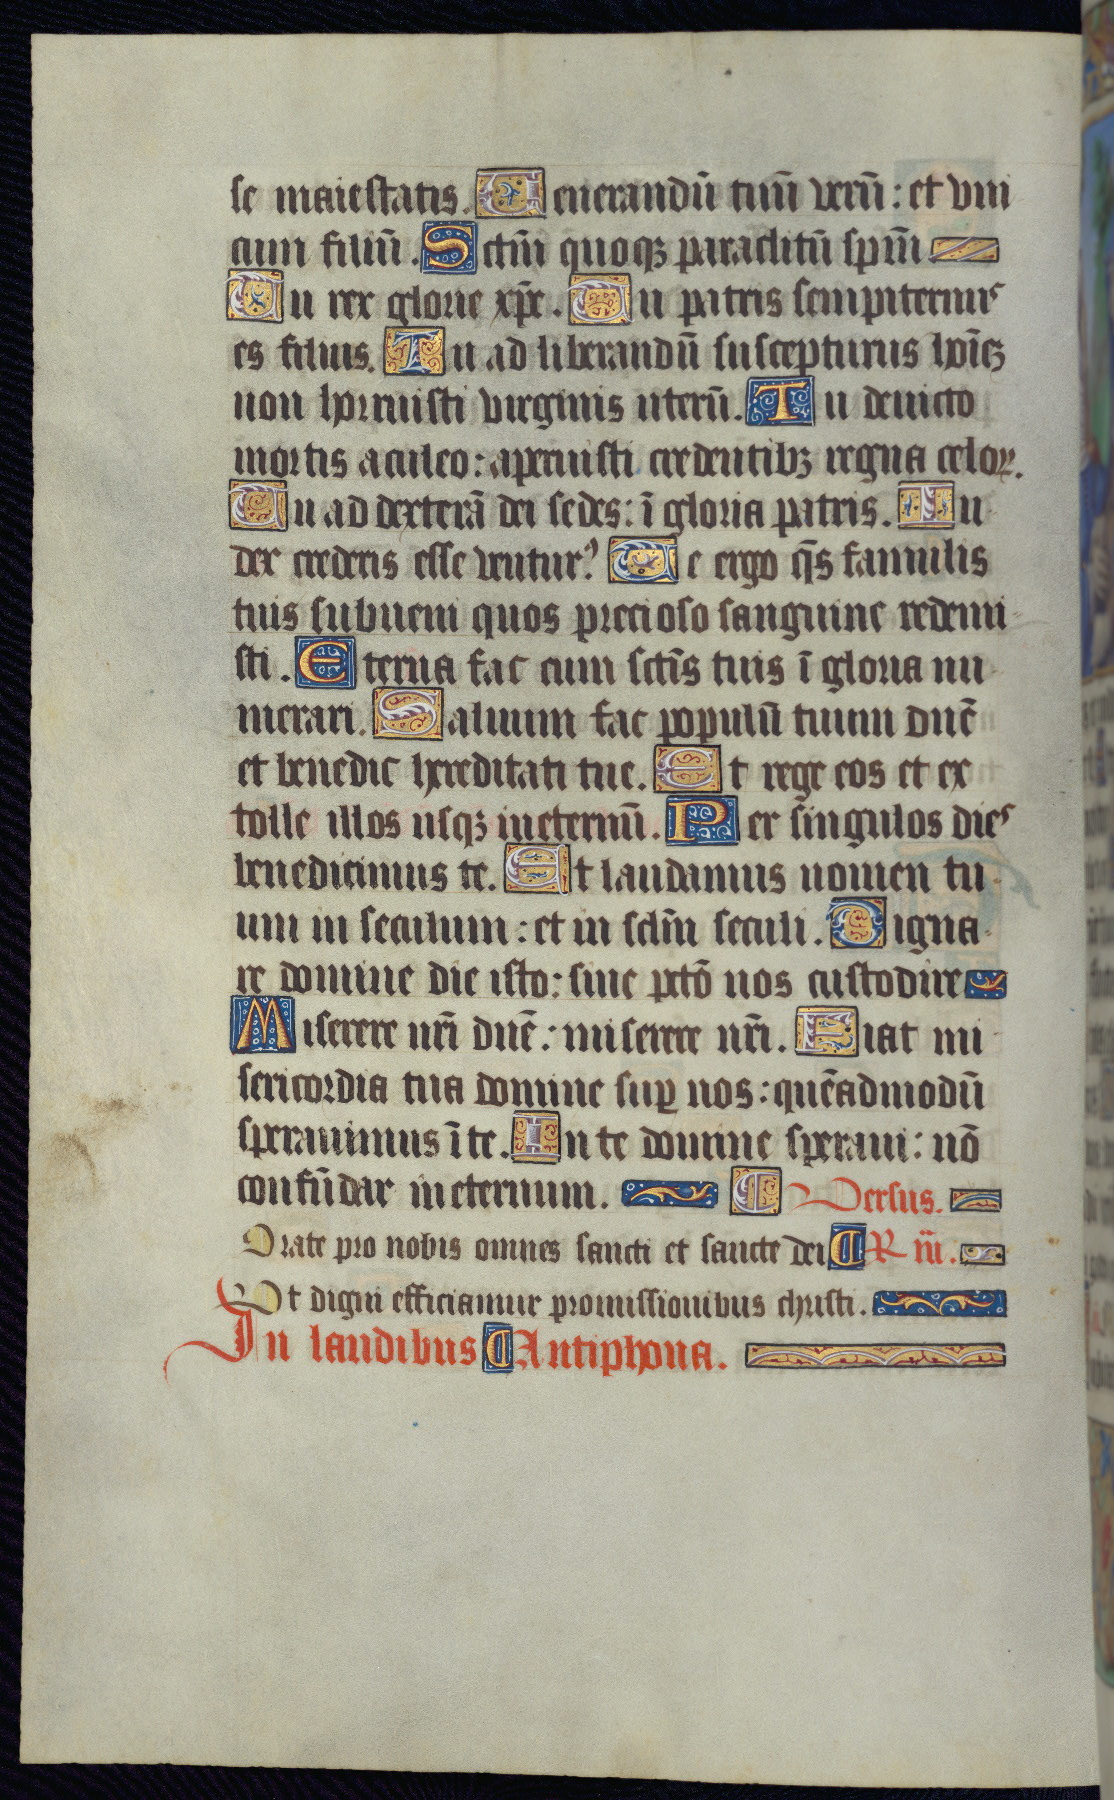 se maiestatis. Venerandū tuū verū: et vni
cum filiū. Sctm̄ quoqꝫ paraclitū spm̄
Tu rex glorie xp̄e. Tu patris sempiternus
es filius. Tu ad liberandū suscepturus hoīeꝫ
non horruisti virginis uterū. Tu deuicto
mortis aculeo: aperuisti credentibꝫ regna celoꝝ.
Tu ad dexterā dei sedes: ī gloria patris. Iu
dex crederis esse ventur᾽ Te ergo q̄s famulis
tuis subueni quos precioso sanguine redemi
sti. Eterna fac cum sctīs tuis ī gloria nu
merari. Saluum fac populū tuum dn̄e
et benedic hereditati tue. Et rege eos et ex
tolle illos usqꝫ ineternū. Per singulos dies
benedicimus te. Et laudamus nomen tu
um in seculum: et in sclm̄ seculi. Digna
re domine die isto: sine pctō nos custodire
Miserere nr̄i dn̄e: miserere nr̄i. Fiat mi
sericordia tua domine suꝑ nos: quēadmodū
sperauimus ī te. In te domine speraui: nō
confūdar ineternum. Versus.
Orate pro nobis omnes sancti et sancte dei R m̄.
Vt digni efficiamur promissionibus christi.
In laudibus Antiphona.